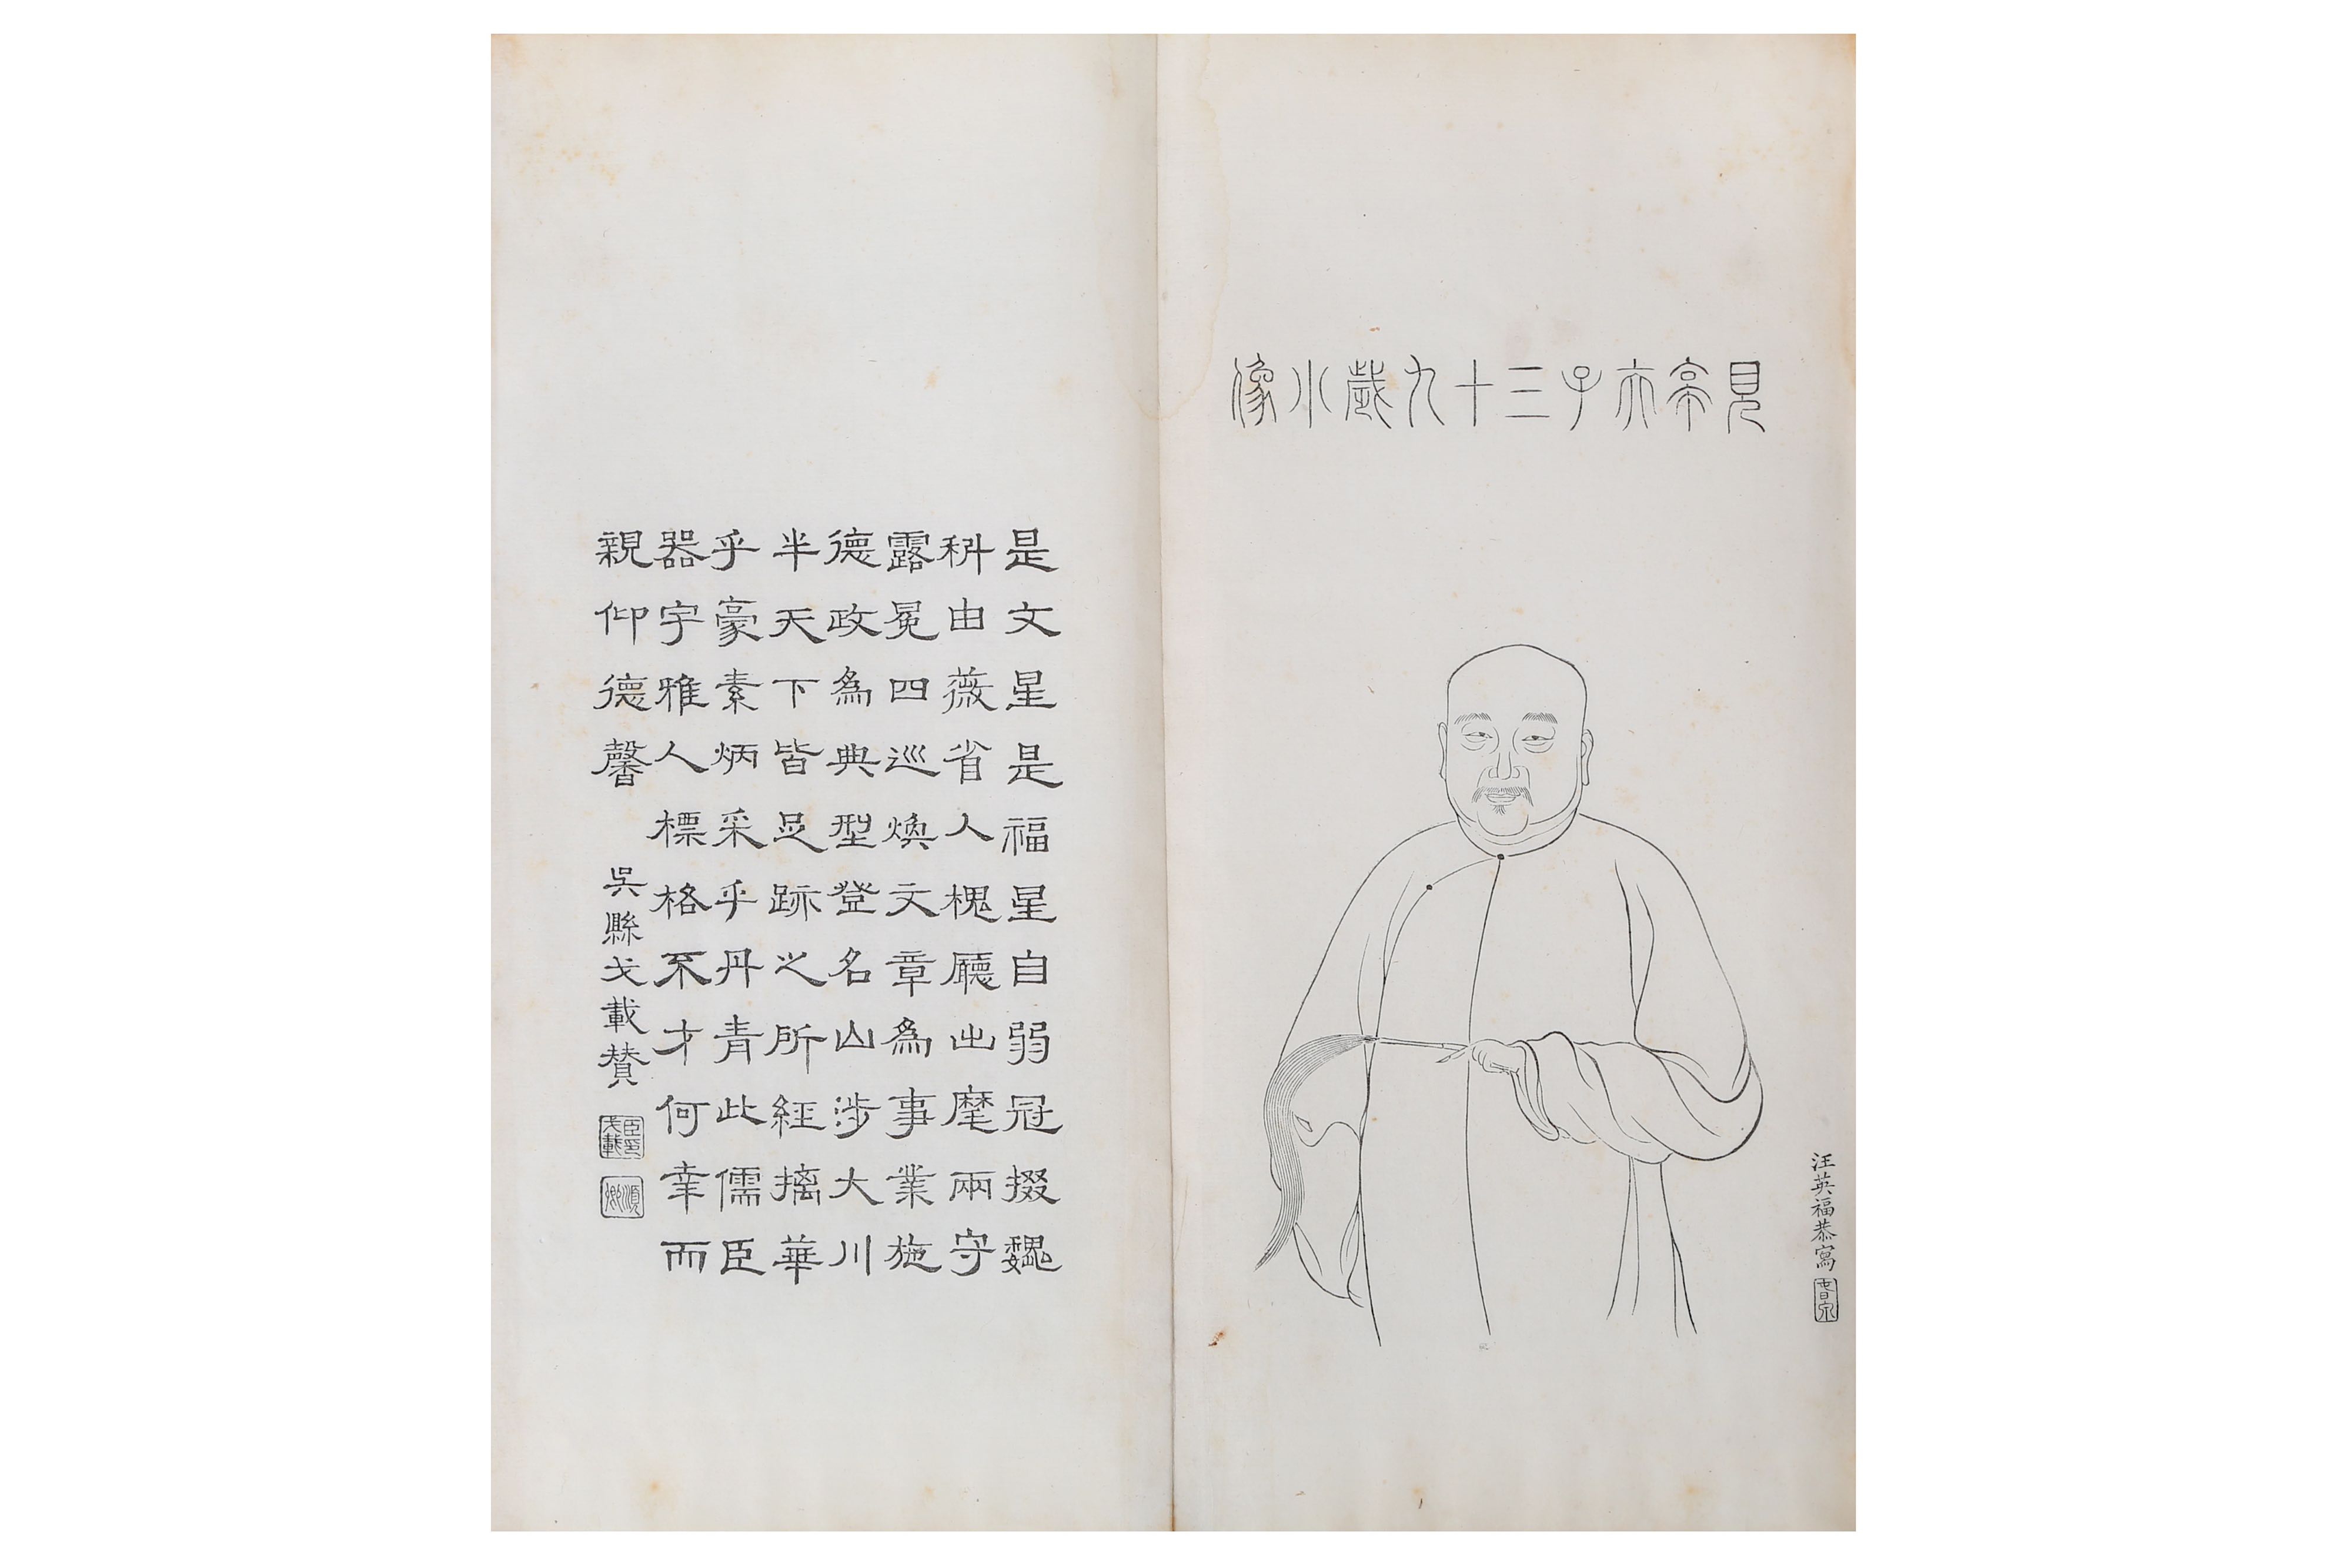 見亭夫子三十九歲小像
汪英福恭寫
是文星是福星自弱冠掇巍
科由薇省入槐廳出麾兩守
露冕四巡煥文章為事業施
德政為典型登名山涉大川
半天下皆足跡之所經摛華
乎豪素炳采乎丹青此儒臣
器宇雅人標格不才何幸而
親仰德馨
吳縣戈載贊
臣印戈載
順卿